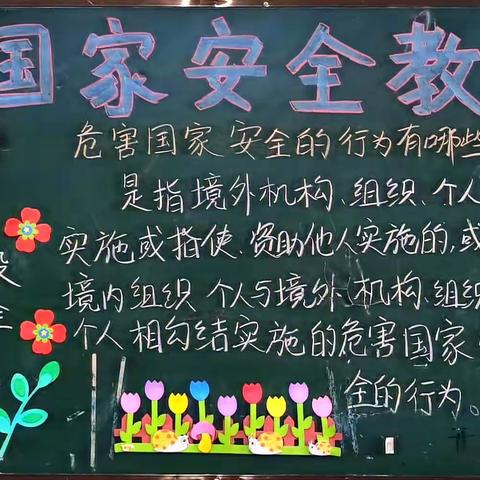 国家安全教
危害国家安全的行为有哪些
是指境外机构、组织、个人
实施或指使、资助他人实施的,或
境内组织、个人与境外机构、组织
个人相勾结实施的危害国家
全的行为。